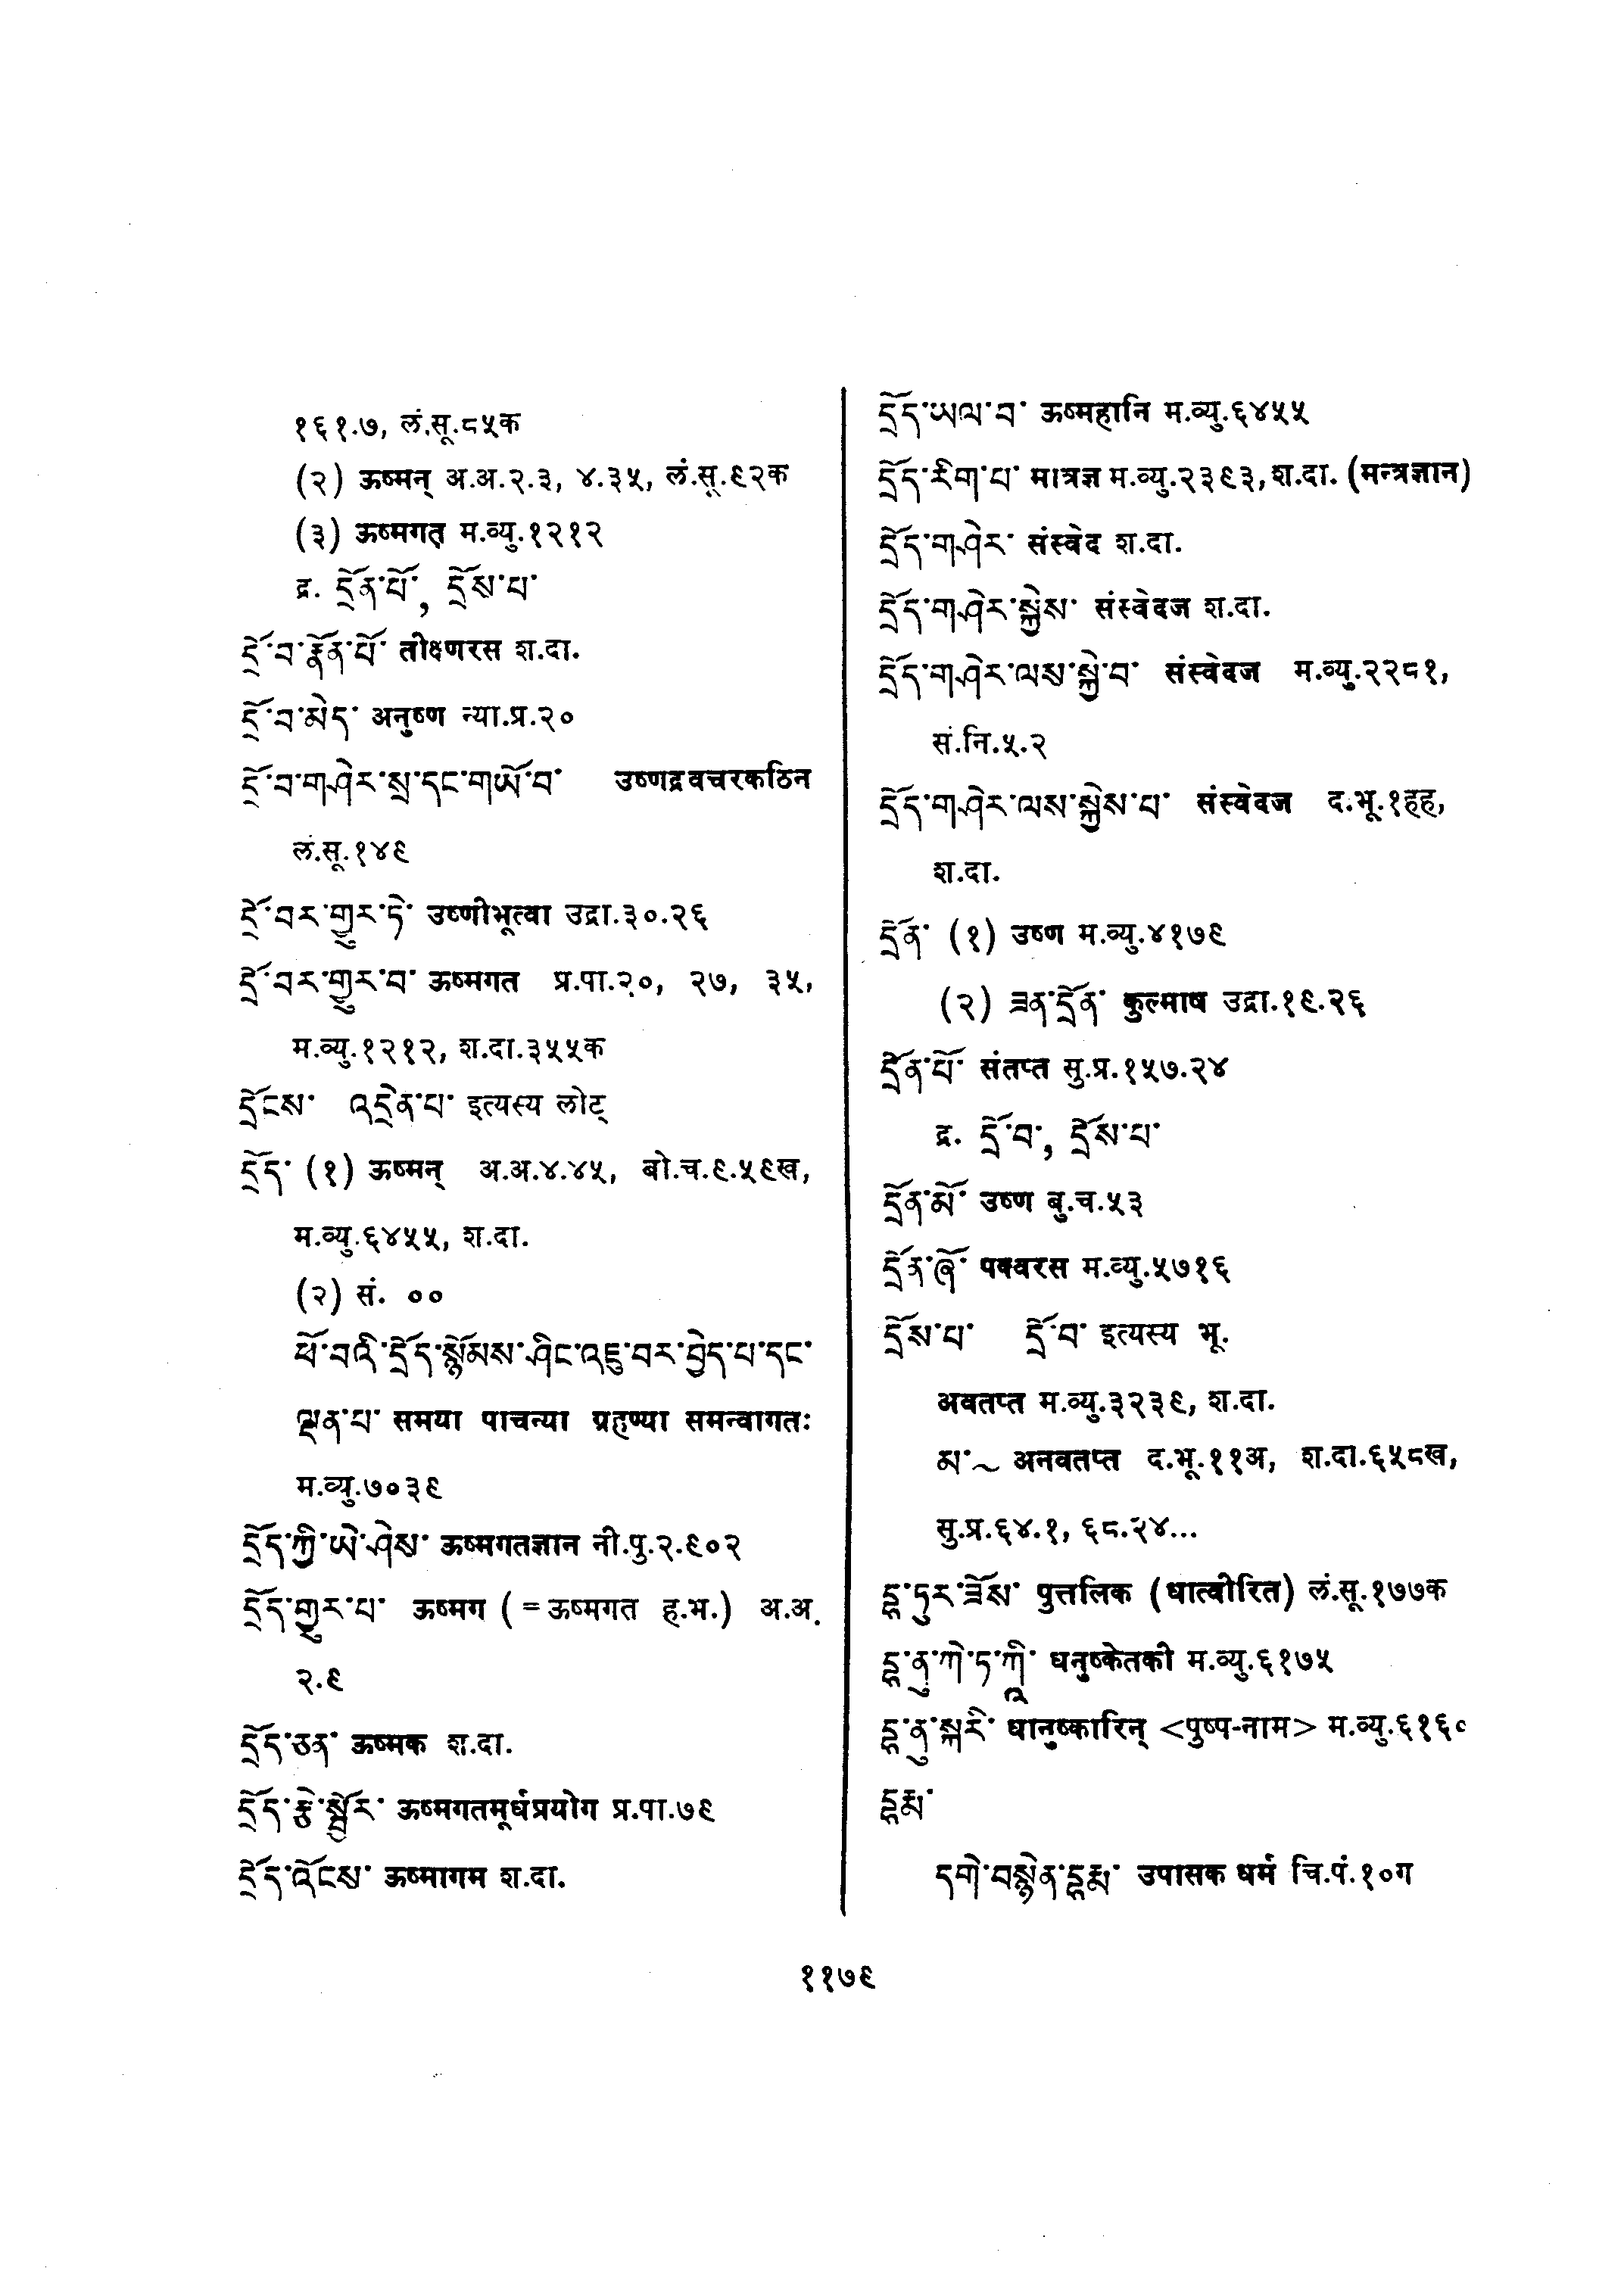 १६१.७, लं.सू.८५क
(२) ऊष्मन् अ.अ.२.३, ४.३५, लं.सू.९२क
(३) ऊष्मगत म.व्यु.१२१२
द्र. དྲོན་པོ་, དྲོས་པ་
དྲོ་བ་རྣོན་པོ་ तीक्ष्णरस श.दा.
དྲོ་བ་མེད་ अनुष्ण न्या.प्र.२०
དྲོ་བ་གཤེར་སྲ་དང་གཡོ་བ་ उष्णद्रवचरकठिन
लं.सू.१४९
དྲོ་བར་གྱུར་ཏེ་ उष्णीभूत्वा उद्रा.३०.२६
དྲོ་བར་གྱུར་བ་ ऊष्मगत प्र.पा.२०, २७, ३५,
म.व्यु.१२१२, श.दा.३५५क
དྲོངས་ འདྲེན་པ་ इत्यस्य लोट्
དྲོད་ (१) ऊष्मन् अ.अ.४.४५, बो.च.९.५९ख,
म.व्यु.६४५५, श.दा.
(२) सं. ००
ཕོ་བའི་དྲོད་སྙོམས་ཤིང་འཇུ་བར་བྱེད་པ་དང་
ལྡན་པ་ समया पाचन्या ग्रहण्या समन्वागतः
म.व्यु.७०३९
དྲོད་ཀྱི་ཡེ་ཤེས་ ऊष्मगतज्ञान नी.पु.२.९०२
དྲོད་གྱུར་པ་ ऊष्मग (=ऊष्मगत ह.भ.) अ.अ.
२.९
དྲོད་ཅན་ ऊष्मक श.दा.
དྲོད་རྩེ་སྦྱོར་ ऊष्मगतमूर्धप्रयोग प्र.पा.७९
དྲོད་འོངས་ ऊष्मागम श.दा.
དྲོད་ཡལ་བ་ ऊष्महानि म.व्यु.६४५५
དྲོད་རིག་པ་ मात्रज्ञ म.व्यु.२३९३, श.दा. (मन्त्रज्ञान)
དྲོད་གཤེར་ संस्वेद श.दा.
དྲོད་གཤེར་སྐྱེས་ संस्वेदज श.दा.
དྲོད་གཤེར་ལས་སྐྱེ་བ་ संस्वेदज म.व्यु.२२८१,
सं.नि.५.२
དྲོད་གཤེར་ལས་སྐྱེས་པ་ संस्वेदज द.भू.१हह,
श.दा.
དྲོན་ (१) उष्ण म.व्यु.४१७९
(२) ཟན་དྲོན་ कुल्माष उद्रा.१९.२६
དྲོན་པོ་ संतप्त सु.प्र.१५७.२४
द्र. དྲོ་བ་, དྲོས་པ་
དྲོན་མོ་ उष्ण बु.च.५३
དྲོན་ཞོ་ पक्वरस म.व्यु.५७१६
དྲོས་པ་ དྲོ་བ་ इत्यस्य भू.
अवतप्त म.व्यु.३२३९, श.दा.
མ་~ अनवतप्त द.भू.११अ, श.दा.६५८ख,
सु.प्र.६४.१, ६८.२४...
དྷ་དུར་ཟོས་ पुत्तलिक (धात्वीरित) लं.सू.१७७क
དྷ་ནུ་ཀེ་ཏ་ཀཱི་ धनुष्केतकी म.व्यु.६१७५
དྷ་ནུ་སྐརི་ धानुष्कारिन् <पुष्प-नाम> म.व्यु.६१६०
དྷརྨ་
དགེ་བསྙེན་དྷརྨ་ उपासक धर्म चि.पं.१०ग
११७९